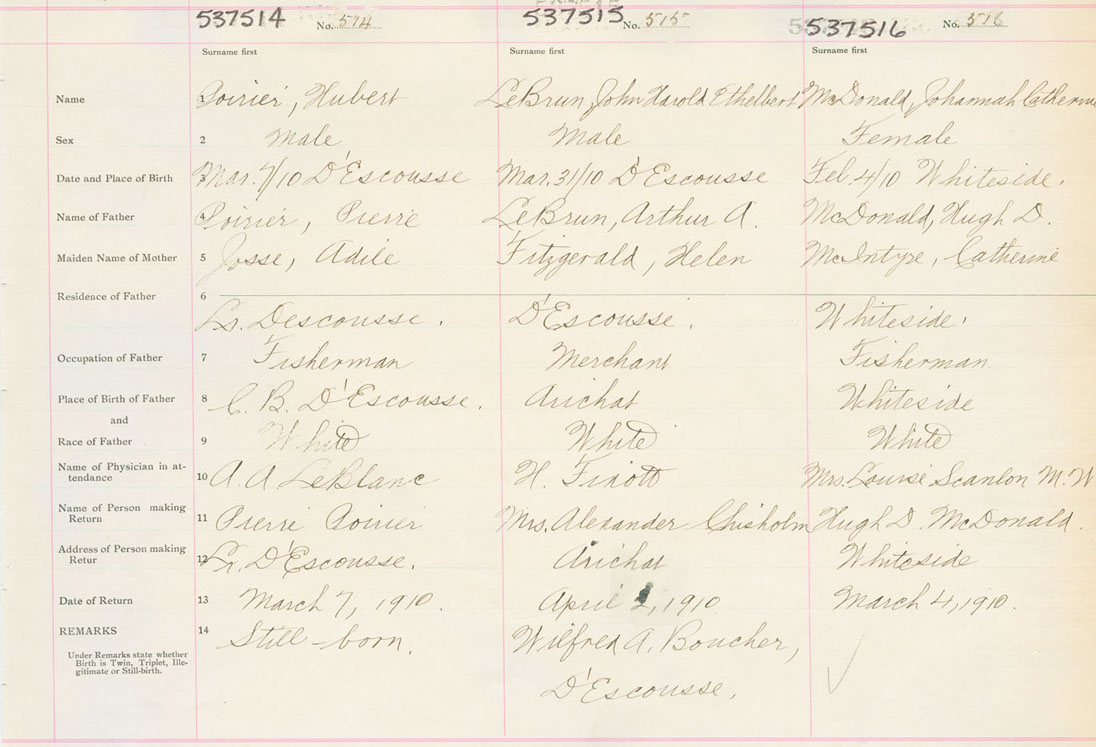 537514 No. 574 537515 No. 575 537516 No. 576
Surname first Surname first Surname first
Name 1 Poirier, Hubert LeBrun, John Harold Ethelbert McDonald, Johannah Catherine
Sex 2 Male Male Female
Date and Place of Birth 3 Mar. 7/10 D'Escousse Mar. 31/10 D'Escousse Feb. 4/10 Whiteside.
Name of Father 4 Poirier, Pierre LeBrun, Arthur A. McDonald, Hugh D.
Maiden Name of Mother 5 Josse, Adile Fitzgerald, Helen McIntyre, Catherine
Residence of Father 6
Lr. Descousse. D'Escousse. Whiteside.
Occupation of Father 7 Fisherman Merchant Fisherman
Place of Birth of Father 8 C. B. D'Escousse. Arichat Whiteside
and
Race of Father 9 White White White
Name of Physician in at-
tendance 10 A. A LeBlanc H. Mrs. Louise Scanlon M. W
Name of Person making
Return 11 Pierre Poirier Mrs. Alexander Chisholm Hugh D. McDonald.
Address of Person making
Retur 12 Lr. D'Escousse. Arichat Whiteside
Date of Return 13 March 7, 1910. April , 1910 March 4, 1910.
REMARKS 14 Still-born. Wilfred A. Boucher,
Under Remarks state whether
Birth is Twin, Triplet, Ille-
gitimate or Still-birth.
D'Escousse.